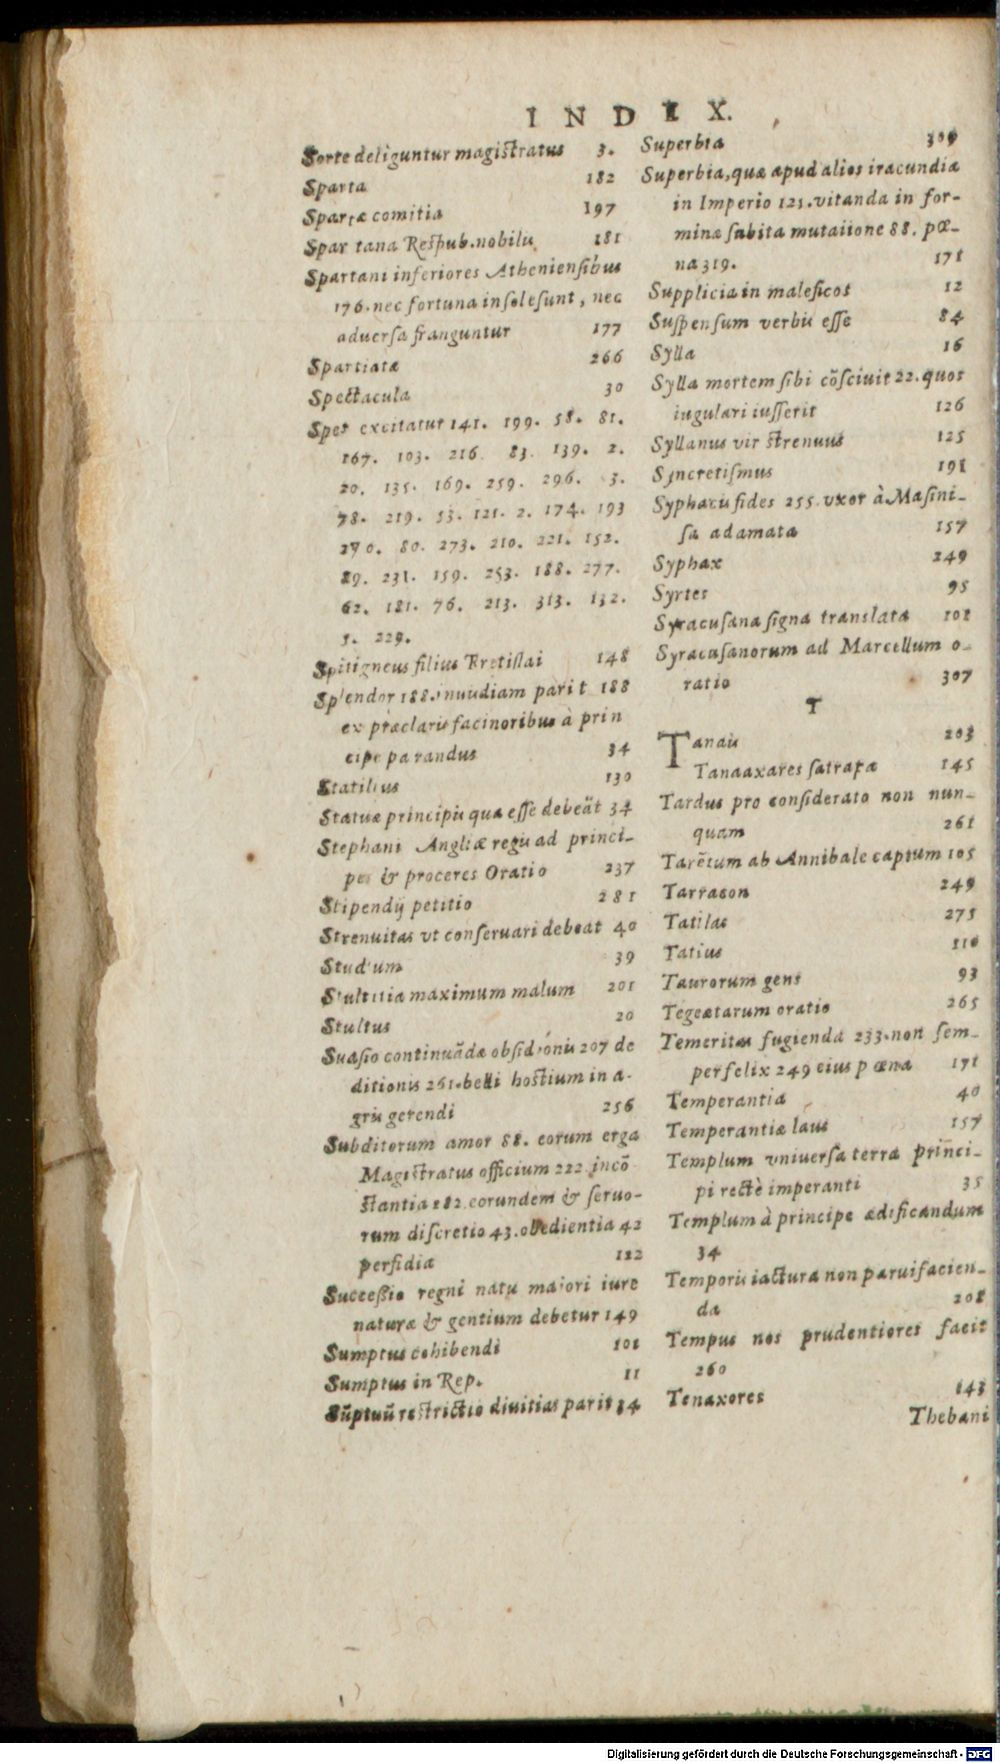 INDEX.
Sorte deliguntur magistratus 3.
Sparta 182
Spartæ comitia 197
Spartana Respub. nobilis 181
Spartani inferiores Atheniensibus
176. nec fortuna insolesunt, nec
aduersa franguntur 177
Spartiatæ 266
Spectacula 30
Spes excitatur 141. 199. 58. 81.
167. 103. 216. 83. 139. 2.
20. 135. 169. 259. 296. 3.
78. 219. 53. 121. 2. 174. 193
270. 80. 273. 210. 221. 152.
89. 231. 159. 253. 188. 277.
62. 181. 76. 213. 313. 132.
5. 229.
Spitigneus filius Bretislai 148
Splendor 188. inuidiam parit 188
ex præclaris facinoribus à prin
cipe parandus 34
Statilius 130
Statuæ principis quæ esse debeãt 34
Stephani Angliæ regis ad princi-
pes & proceres Oratio 237
Stipendij petitio 281
Strenuitas vt conseruari debeat 40
Studium 39
Stultitia maximum malum 201
Stultus 20
Suasio continuãdæ obsidionis 207 de
ditionis 261. belli hostium in a-
gris gerendi 256
Subditorum amor 88. eorum erga
Magistratus officium 222. incõ
stantia 182. eorundem & seruo-
rum discretio 43. obedientia 42
perfidia 112
Successio regni natu maiori iure
naturæ & gentium debetur 149
Sumptus cohibendi 101
Sumptus in Rep. 11
Sũptuũ restrictio diuitias parit 34
Superbia 309
Superbia, quæ apud alios iracundia
in Imperio 125. vitanda in for-
minæ subita mutatione 88. pœ-
na 319. 171
Supplicia in maleficos 12
Suspensum verbis esse 84
Sylla 16
Sylla mortem sibi cõsciuit 22. quos
iugulari iusserit 126
Syllanus vir strenuus 125
Syncretismus 191
Syphacis fides 255. vxor à Masini-
sa adamata 157
Syphax 249
Syrtes 95
Syracusana signa translata 101
Syracusanorum ad Marcellum o-
ratio 307
T
Tanais 203
Tanaaxares satrapa 145
Tardus pro considerato non nun-
quam 261
Tarẽtum ab Annibale captum 105
Tarracon 249
Tatilas 275
Tatius 110
Taurorum gens 93
Tegeatarum oratio 265
Temeritas fugienda 233. non sem-
per felix 249 eius pœna 171
Temperantia 40
Temperantiæ laus 157
Templum vniuersa terra princi-
pi rectè imperanti 35
Templum à principe ædificandum
34
Temporis iactura non parui facien-
da 208
Tempus nos prudentiores facit
260
Tenaxores 143
Thebani
Digitalisierung gefördert durch die Deutsche Forschungsgemeinschaft - DFG